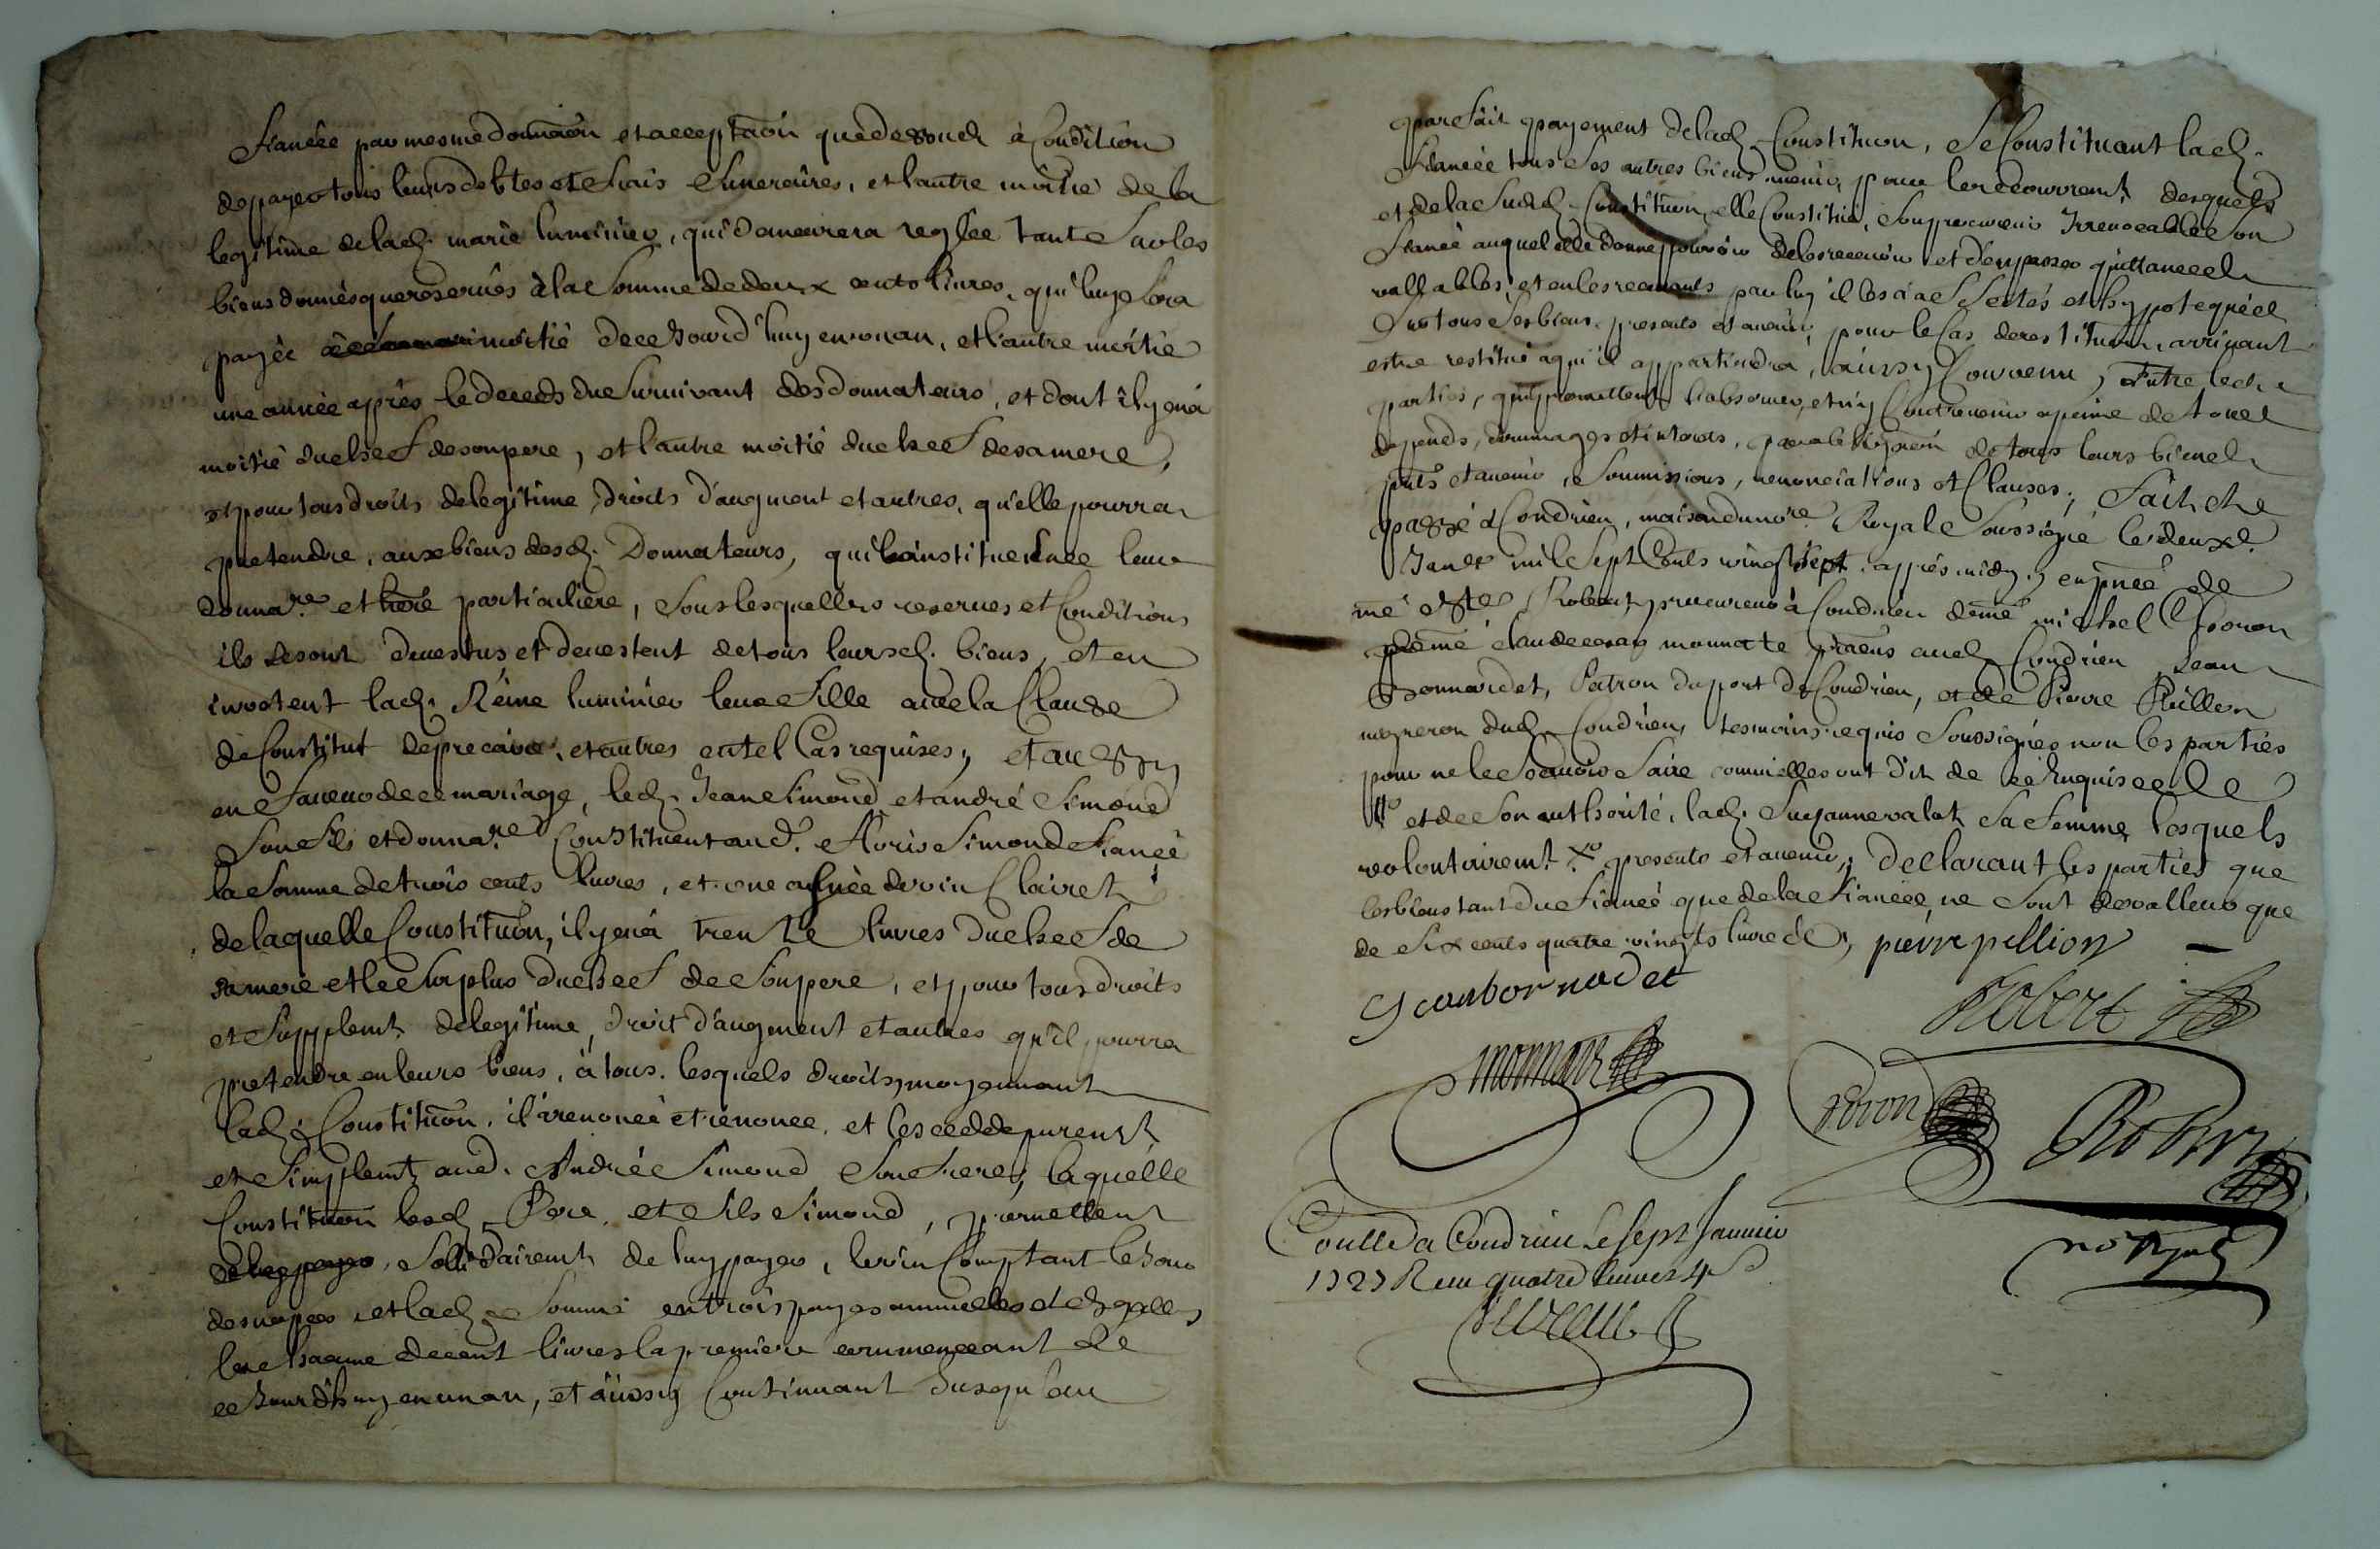 fiancée par mesme donnaôn et acceptaôn que dessuch à Condition
de payer tous leurs debtes et frais funeraires, et l'autre moitié de la
legitime de lad. marie luminier, qui demeurera reglée tant sur les
biens donnés que reservés à la somme de deux cents livres, qui luy sera
payée moitié de ce Jourd'huy en un an, et l'autre moitié
une année après le deceds du survivant des donnateurs, et dont il y en a
moitié du chef de son pere, et l'autre moitié du chef de sa mere,
et pour tous droits de legitime, droits d'augment et autres, qu'elle pourra
pretendre, aux biens desd. Donnateurs, qui l'a instituent leur
donnare. et here particuliere, sous lesquelles reserves et Conditions
ils se sont devestus et devestent de tous leursd. biens, et en
investent lad. Reine luminier leur fille avec la Clause
de Constitut de precaire, et autres en tel Cas requises, et aussy
en faveur de ce mariage, led. Jean Simond et andré Simond
son fils et donnare. Constituent aud. fleuris Simond fiancé
la somme de trois cents livres, et une asnée de vin Clairet
de laquelle Constituôn, il y en a trente livres du chef de
sa mere et le surplus du chef de son pere, et pour tous droits
et supplemt. de legitime, droit d'augment et autres qu'il pourra
pretendre en leurs biens, à tous lesquels droits, moyennant
lad. Constituôn, il a renoncé et renonce, et les cedde puremt.
et simplemt. aud. André Simond son frere, laquelle
Constituôn lesd. Pere et fils Simond, promettent
de luy payer, sollidairemt. de luy payer, le vin Comptant le Jour
des nopces, et lad. somme en trois payes annuelles et Esgalles
de chacune de cent livres la premiere commenceant de
ce Jourd'huy en un an, et aussy Continuant Jusqu'au
parfait payement de lad. Constituôn, se Constituant lad.
fiancée tous ses autres biens avenir, pour le recouvremt. desquels
et de la susd. Constituôn, elle Constitue, son procureur Irrevocable son
fiancé auquel elle donne pouvoir de les recevoir et d'en passer quittancech
vallables, et en les recevants par luy il les a affectés et hypotequéch
sur tous ses biens presents et avenir, pour le Cas de restituôn arrivant
estre restitué a qui il appartiendra, ainsy Convenu, Entre lesd.
parties, qui promettent l'observer, et n'y Contrevenir a peine de touch
depends, dommages et interests, par obligaôn de tous leurs biench
pnts et avenir, soumissions, renonciations et Clauses; fait che
passé à Condrieu, maison du nore. Royal soussigné le deuxe.
Janer mil sept Cents vingt sept après midy, en pnce de
me Robert procureur à Condrieu de me michel Choron
de me claude monnate praens aud. Condrieu Jean
Bonnardet, Patron du port de Condrieu, et de Pierre Pillion
dud. Condrieu, tesmoins requis soussignés non les parties
pour ne le sçavoir faire comme elles ont dit de ce Enquises
et de son authorité, lad. Suzanne valot sa femme lesquels
volontairemt. presents et avenir, Declarant les parties que
les biens tant du fiancé que de la fiancée, ne sont de valleur que
de six cents quatre vingts livre de, pierre pillion
Jean bornardet
Robert
monnate
Choron
Robert
no Royal
Coullé a Condrieu Le sept Janvier
1727 Reçu quatre livres 4 s